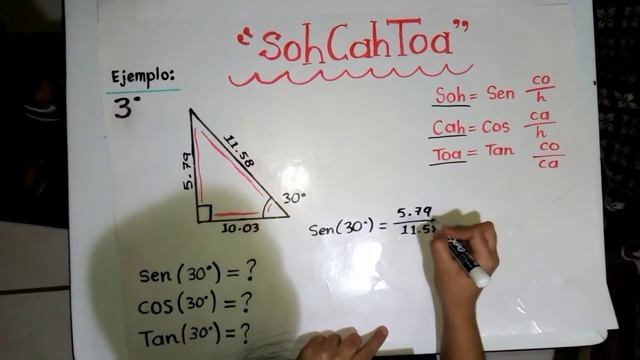 "SohCahToa"
Ejemplo:
3°
Soh = Sen co/h
Cah = Cos ca/h
Toa = Tan co/ca
5.79
11.58
30°
10.03
Sen(30°) = 5.79/11.58
sen(30°) = ?
cos(30°) = ?
Tan(30°) = ?